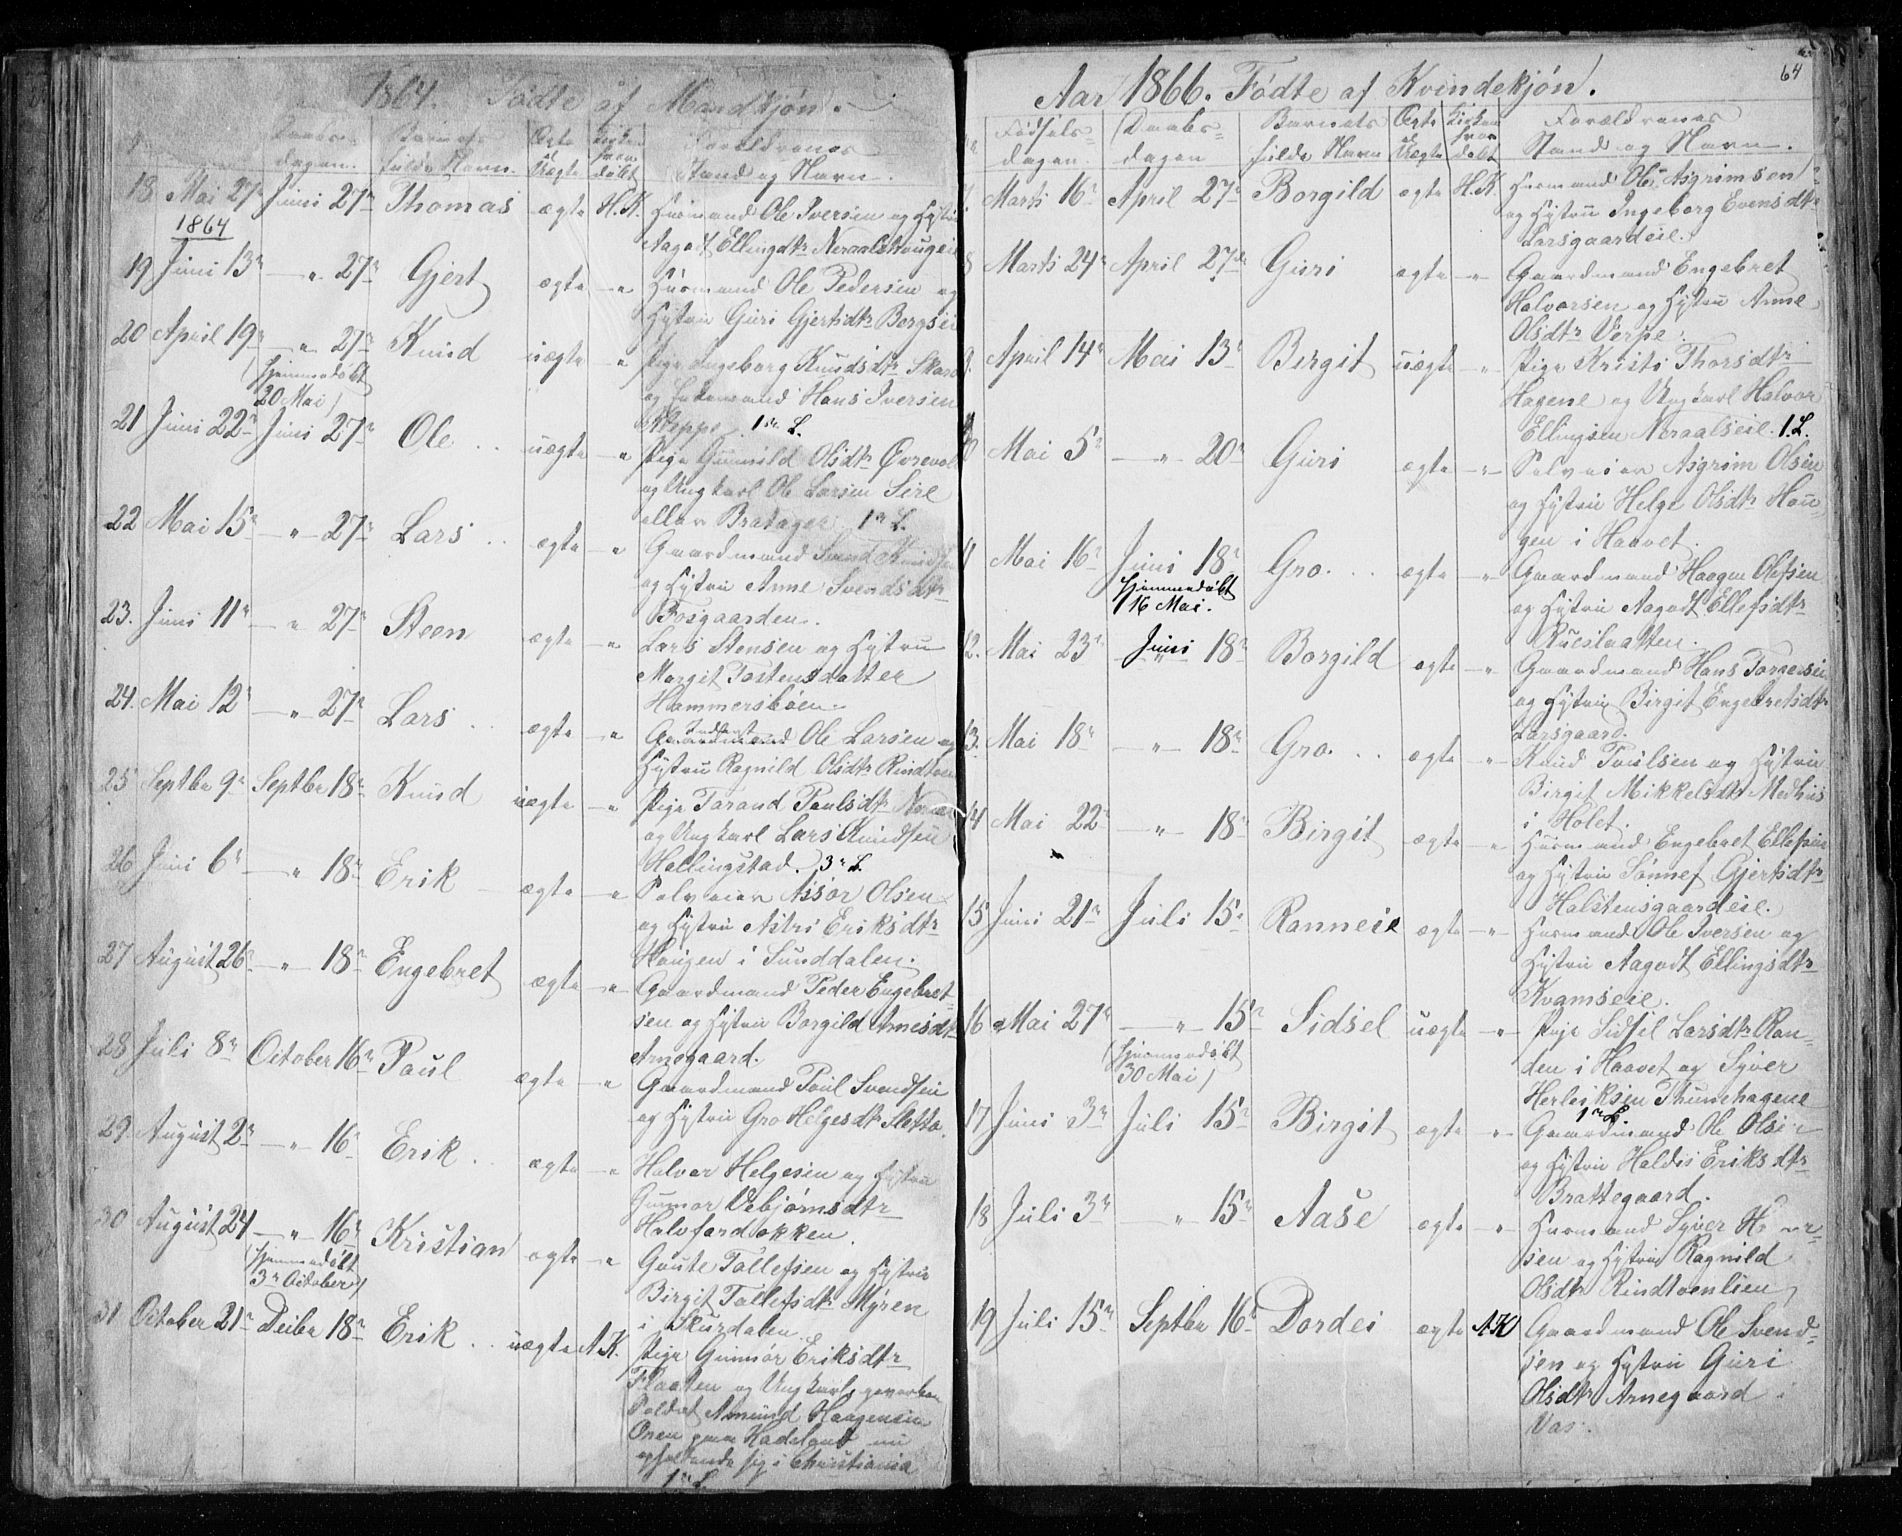 1864. Fødte af Mandkjøn.
Daabs-
dagen.
Barnets
fulde Navn.
Ægte
el
Uægte
Kirken
hvor
døbt
Forældrenes
Stand og Navn.
18. Mai 27 Juni 27 Thomas ægte H.K. Husmand Ole Iversen og Hustru
1864
Aagodt Ellingdtr Noraals
19 Juni 13 — " 27 Gjert ægte — " Husmand Ole Pedersen og
Hustru Guri Gjertsdtr
20 April 19 — " 27 Knud uægte — " Pige Ingeborg Knudsdtr
(hjemmedøbt
20 Mai)
og Enkemand Hans Iversen
1ste L.
21 Juni 22 Juni 27 Ole uægte — " Pige Gunnild Olsdtr
og Ungkarl Ole Larsen Seil
eller Bratager 1ste L.
22 Mai 15 — " 27 Lars ægte — " Gaardmand
og Hustru Anne Svendsdtr
Tosgaarden.
23. Juni 11 — " 27 Steen ægte — " Lars Stensen og Hustru
Margit Tostensdatter
Hammersbøen.
24. Mai 12 — " 27 Lars ægte — " Gaardmand Ole Larsen og
Hustru Ragnild Olsdtr
25 Septbr 9 Septbr 18 Knud uægte — " Pige Tarand Paulsdtr
og Ungkarl Lars Knudsen
Hallingstad. 3 L.
26 Juni 6 — " 18 Erik ægte — " Selveier Assor Olsen
og Hustru Astri Eriksdtr
Haugen i Sunddalen.
27 August 26 — " 18 Engebret ægte — " Gaardmand Peder Engebret-
sen og Hustru Borgild Arnesdtr
Arnegaard.
28 Juli 8 October 16 Paul ægte — " Gaardmand Poul Svendsen
og Hustru Gro Helgesdtr Sletto.
29. August 2 — " 16 Erik ægte — " Halvor Helgesen og Hustru
Gunnor Vebjørnsdtr
30 August 24 — " 16 Kristian ægte — " Goute Tollefsen og Hustru
(hjemmedøbt
3 October)
Birgit Tollefsdtr Myren
i Skurdalen.
31 October 21 Decbr 18 Erik uægte A.K. Pige Gunnor Eriksdtr
Flaaten og Ungkarl
Soldat Amund Haagensen
Oren paa Hadeland nu
opholdende sig i Christiania
1 L.
64
Aar 1866. Fødte af Kvindekjøn.
Fødsels
dagen.
Daabs-
dagen
Barnets
fulde Navn
Ægte
el
Uægte
Kirken
hvor
døbt
Forældrenes
Stand og Navn.
7. Marts 16 April 27 Borgild ægte H.K. Husmand Ole Asgrimsen
og Hustru Ingeborg Evensdtr
Larsgaardeie.
8 Marts 24 April 27 Guri ægte — " Gaardmand Engebret
Halvorsen og Hustru Anne
Olsdtr Verpe.
9. April 14 Mai 13 Birgit uægte — " Pige Kristi Thorsdtr
Hagene og Ungkarl Halvor
Ellingsen Noraalseie. 1. L.
10 Mai 5 — " 20 Guri ægte — " Selveier Asgrim Olsen
og Hustru Helge Olsdtr Hau-
gen i Haavet.
11 Mai 16 Juni 18 Gro. ægte — " Gaardmand Haagen Olefsen
hjemmedøbt
16 Mai.
og Hustru Aagodt Ellefsdtr
Rueslaatten.
12. Mai 23 Juni 18 Borgild ægte — " Gaardmand Hans Torgersen
og Hustru Birgit Engebretsdtr
Larsgaard.
13. Mai 18 — " 18 Gro. ægte — " Knud Poulsen og Hustru
Birgit Mikkelsdtr Medhus
i Holet.
14 Mai 22 — " 18 Birgit ægte — " Husmand Engebret Ellefsen
og Hustru Sønnef Gjertsdtr
Halstensgaardeie.
15 Juni 21 Juli 15 Ranneie ægte — " Husmand Ole Iversen og
Hustru Aagodt Ellingsdtr
Kvamseie.
16 Mai 27 — " 15 Sidsel uægte — " Pige Sidsel Larsdtr Ran-
(hjemmedøbt
30 Mai)
den i Haavet og Syver
Herleiksen Thunehagene
1 L.
17 Juni 3 Juli 15 Birgit ægte — " Gaardmand Ole Olsen
og Hustru Haldis Eriksdtr
Brattegaard.
18 Juli 3 — " 15 Aase ægte — " Husmand Syver
sen og Hustru Ragnild
Olsdtr Rindtoenlien
19 Juli 15 Septbr 16 Dordei ægte A.K Gaardmand Ole Svend-
sen og Hustru Guri
Olsdtr Arnegaard i
Vas.